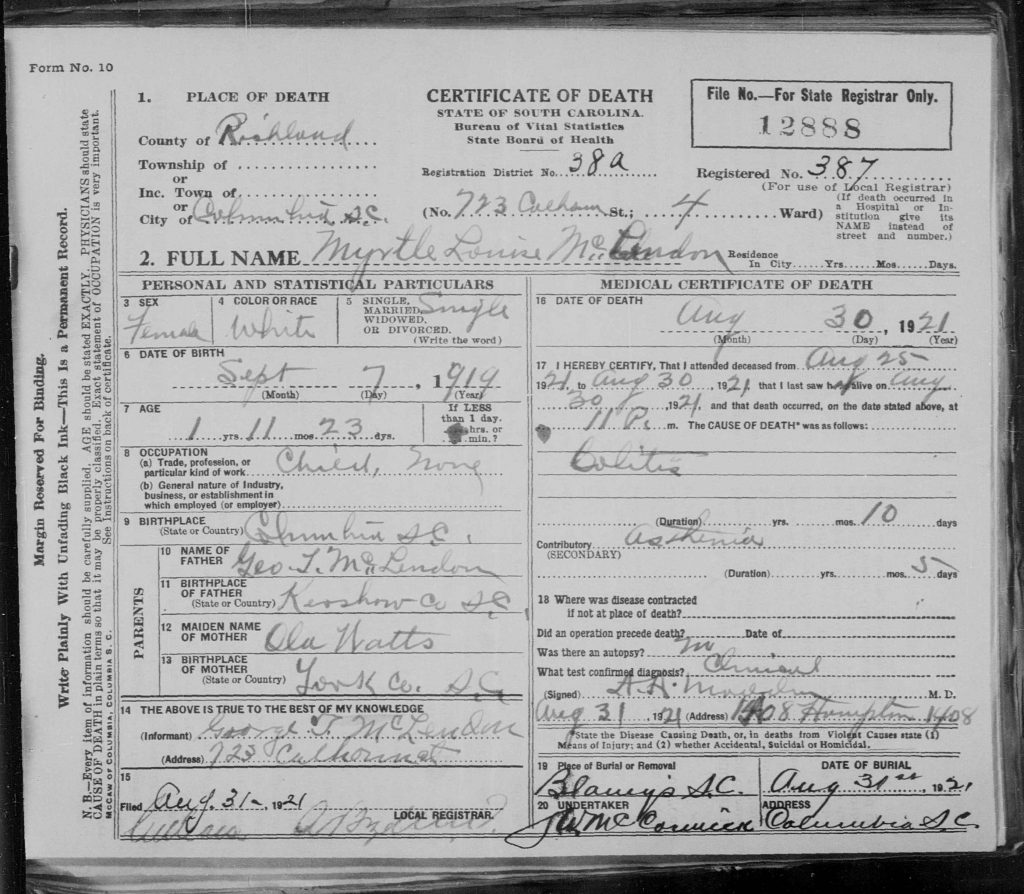 Form No. 10
1. PLACE OF DEATH
County of Richland
Township of
or
Inc. Town of
or
City of Columbia S.C.
CERTIFICATE OF DEATH
STATE OF SOUTH CAROLINA.
Bureau of Vital Statistics
State Board of Health
File No.—For State Registrar Only.
12888
Registration District No. 38a
Registered No. 387
(For use of Local Registrar)
(No. 723 Calhoun St.; 4 Ward)
(If death occurred in
a Hospital or In-
stitution give its
NAME instead of
street and number.)
2. FULL NAME Myrtle Louise McLendon
Residence
In City Yrs. Mos. Days.
PERSONAL AND STATISTICAL PARTICULARS
3 SEX
Female
4 COLOR OR RACE
White
5 SINGLE,
MARRIED,
WIDOWED,
OR DIVORCED.
(Write the word)
Single
6 DATE OF BIRTH
Sept 7, 1919
(Month) (Day) (Year)
7 AGE
1 yrs. 11 mos. 23 dys.
If LESS
than 1 day.
hrs. or
min.?
8 OCCUPATION
(a) Trade, profession, or
particular kind of work Child, None
(b) General nature of Industry,
business, or establishment in
which employed (or employer)
9 BIRTHPLACE
(State or Country) Columbia S.C.
PARENTS
10 NAME OF
FATHER Geo. T. McLendon
11 BIRTHPLACE
OF FATHER
(State or Country) Kershow Co S.C.
12 MAIDEN NAME
OF MOTHER Ola Watts
13 BIRTHPLACE
OF MOTHER
(State or Country) York Co. S.C.
14 THE ABOVE IS TRUE TO THE BEST OF MY KNOWLEDGE
(Informant) George T. McLendon
(Address) 723 Calhoun st
15
Filed Aug. 31-, 1921
LOCAL REGISTRAR.
MEDICAL CERTIFICATE OF DEATH
16 DATE OF DEATH
Aug 30, 1921
(Month) (Day) (Year)
17 I HEREBY CERTIFY, That I attended deceased from Aug 25
1921, to Aug 30, 1921 that I last saw h alive on Aug
30, 1921, and that death occurred, on the date stated above, at
11 P. m. The CAUSE OF DEATH* was as follows:
Colitis
(Duration) yrs. mos. 10 days
Contributory Asthenia
(SECONDARY)
(Duration) yrs. mos. 5 days
18 Where was disease contracted
if not at place of death?
Did an operation precede death? Date of
Was there an autopsy? no
What test confirmed diagnosis? Clinical
(Signed) M. D.
Aug 31, 1921 (Address) 1408 Hampton 1408
*State the Disease Causing Death, or, in deaths from Violent Causes state (1)
Means of Injury; and (2) whether Accidental, Suicidal or Homicidal.
19 Place of Burial or Removal
Blaneys S.C.
DATE OF BURIAL
Aug 31st, 1921
20 UNDERTAKER
J W McCormick
ADDRESS
Columbia S.C.
Margin Reserved For Binding.
Write Plainly With Unfading Black Ink—This Is a Permanent Record.
N. B.—Every item of information should be carefully supplied. AGE should be stated EXACTLY. PHYSICIANS should state
CAUSE OF DEATH in plain terms so that it may be properly classified. Exact statement of OCCUPATION is very important.
See Instructions on back of certificate.
McCAW OF COLUMBIA, COLUMBIA S. C.